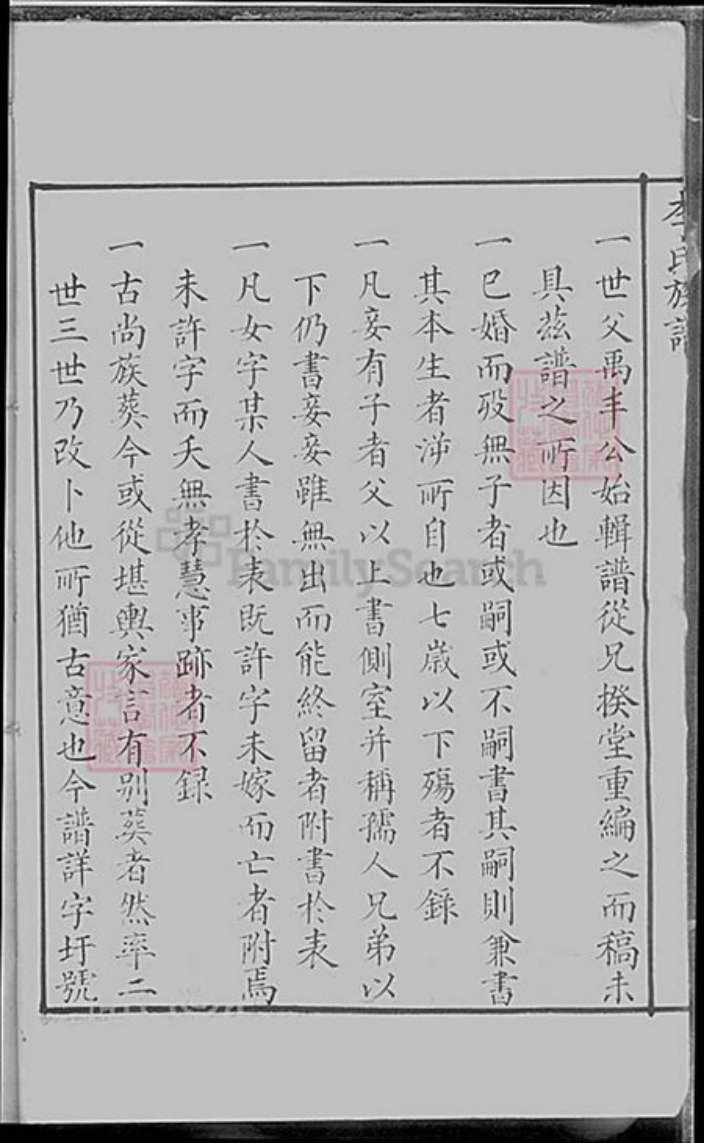 李氏族譜
一世父禹丰公始輯譜從兄揆堂重編之而稿未
具茲譜之所因也
一已婚而歿無子者或嗣或不嗣書其嗣則兼書
其本生者泝所自也七歲以下殤者不錄
一凡妾有子者父以上書側室并稱孺人兄弟以
下仍書妾妾雖無出而能終留者附書於表
一凡女字某人書於表既許字未嫁而亡者附焉
未許字而夭無孝慧事跡者不録
一古尚族葬今或從堪輿家言有別葬者然率二
世三世乃改卜他所猶古意也今譜詳字圩號
FamilySearch